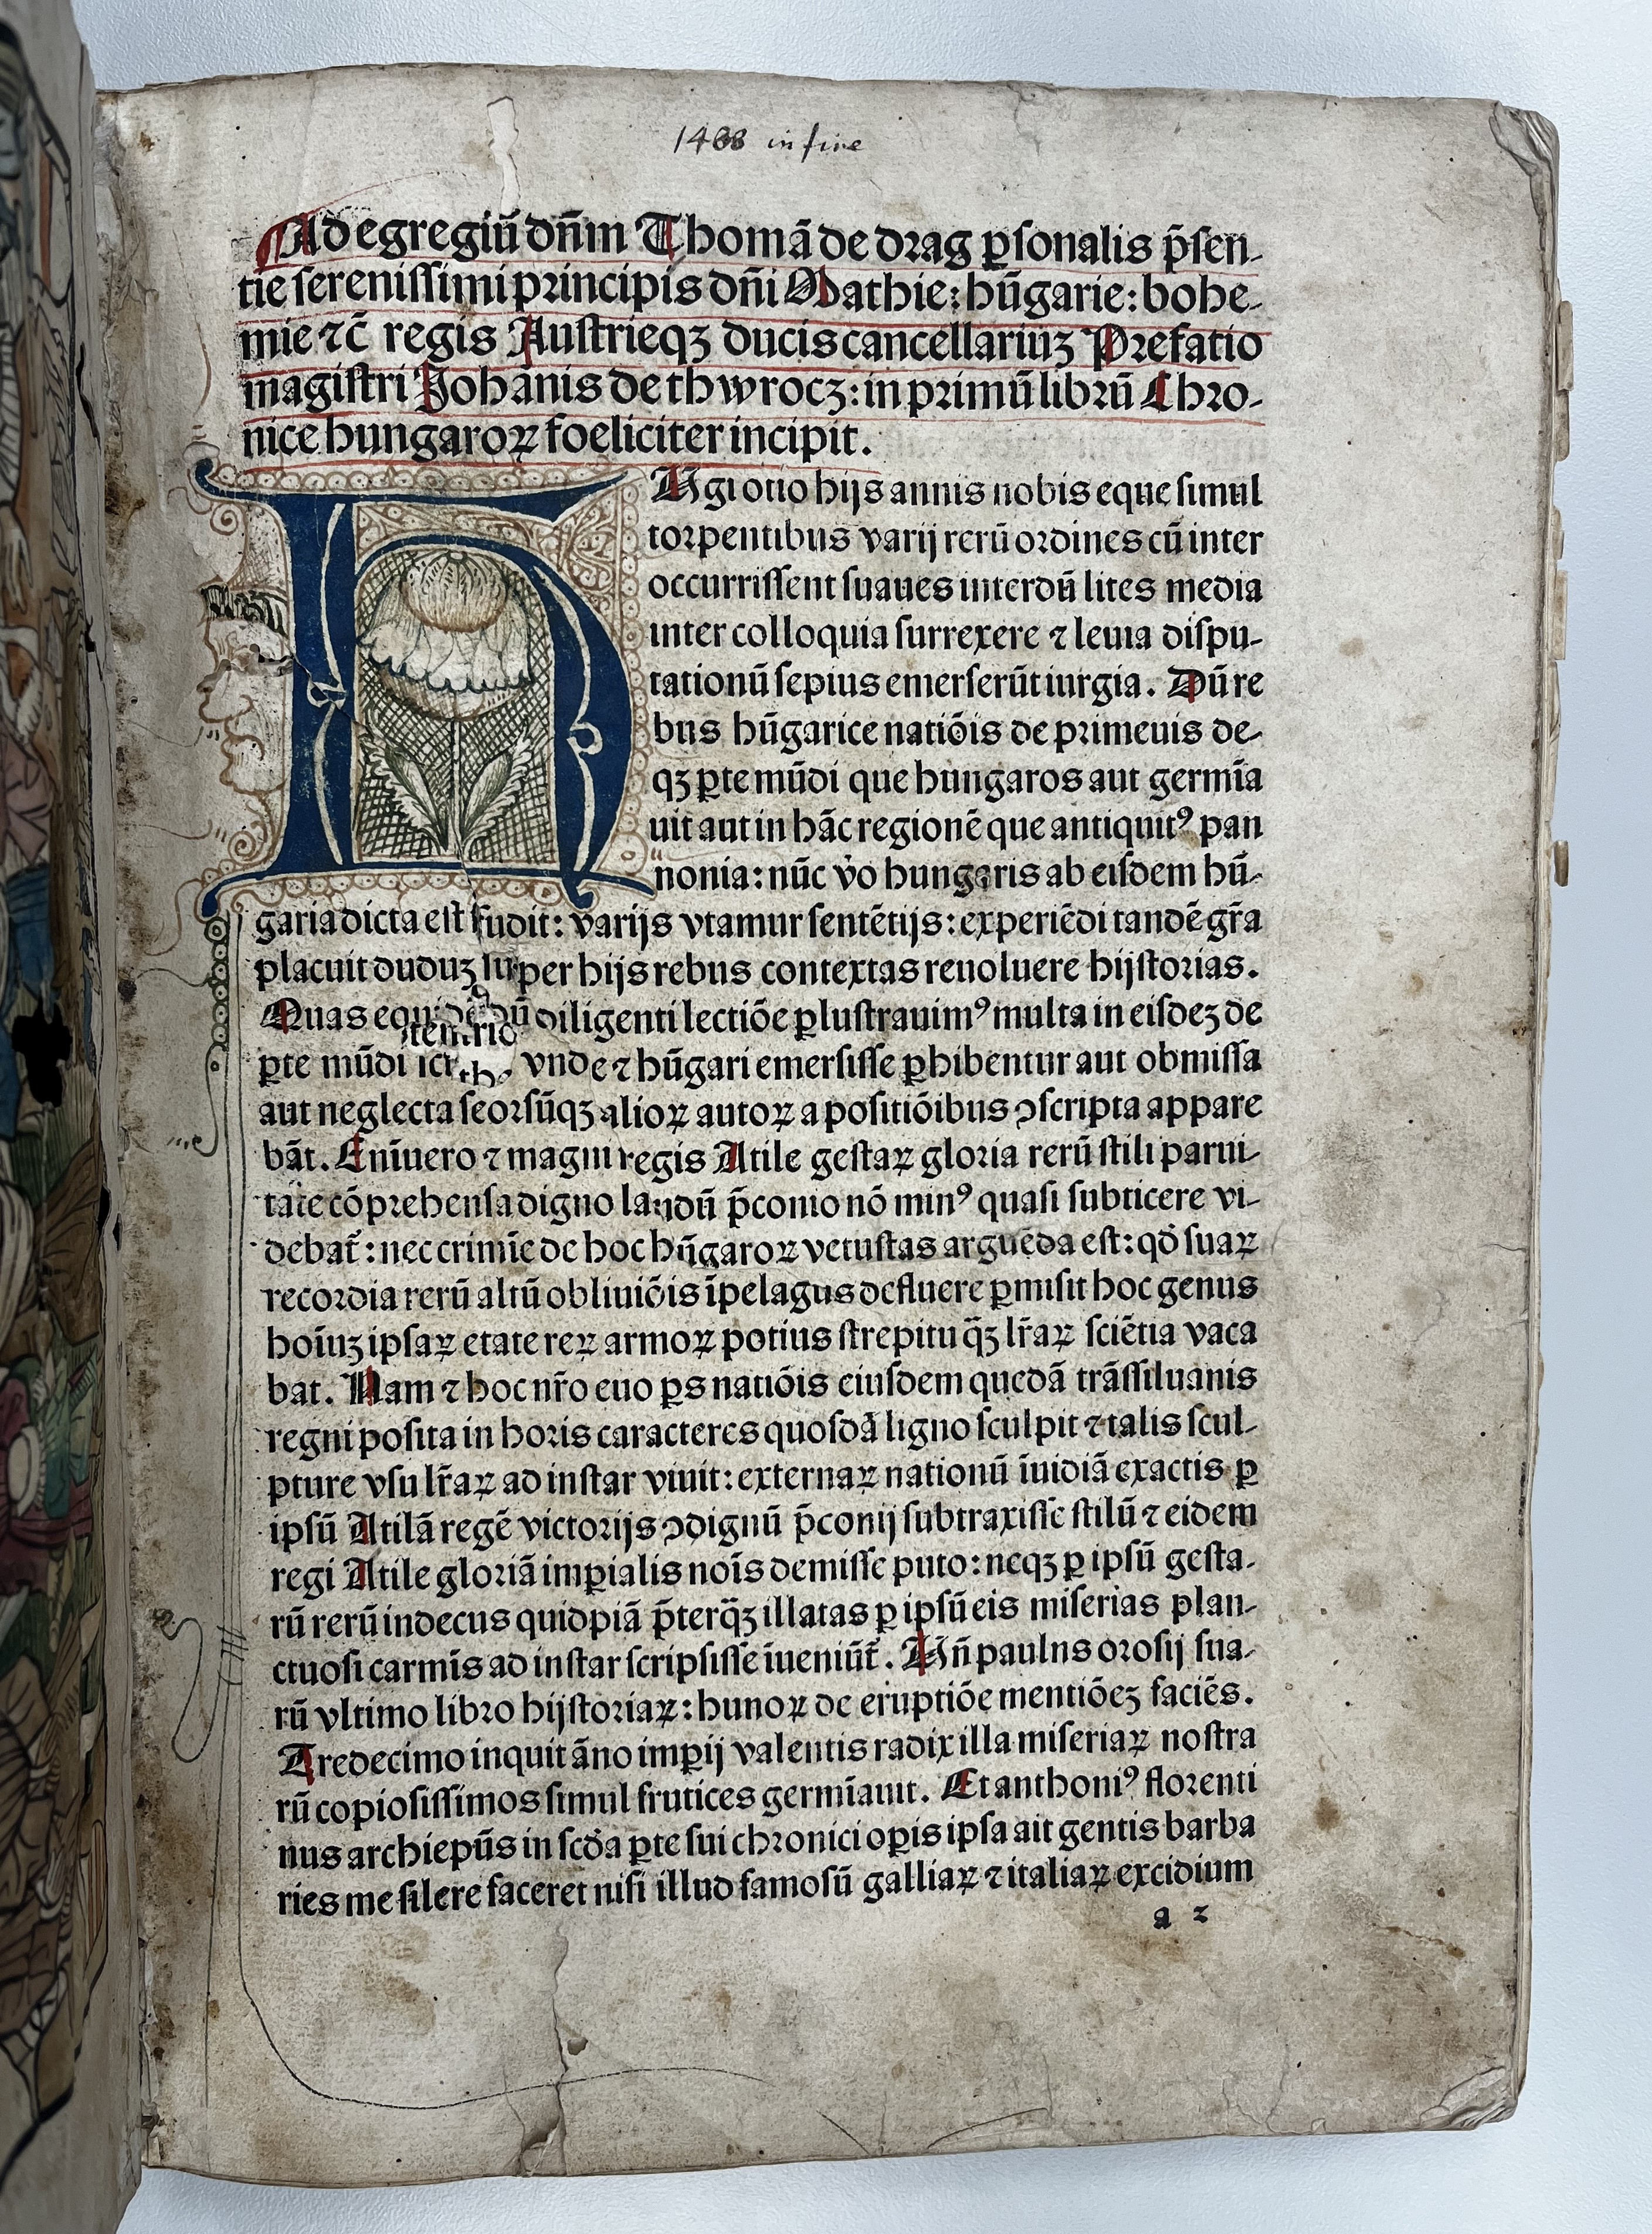 1488 in fine
Ad egregiū dn̄m Thomā de drag ꝑsonalis p̄sen-
tie serenissimi principis dn̄i Mathie: hūgarie: bohe-
mie ⁊c̄ regis Austrieqʒ ducis cancellariuʒ Prefatio
magistri Johānis de thwrocz: in primū librū Chro-
nice hungaroꝝ foeliciter incipit.
HUgi otio hijs annis nobis eque simul
torpentibus varij rerū ordines cū inter
occurrissent suaues interdū lites media
inter colloquia surrexere ⁊ leuia dispu-
tationū sepius emerserūt iurgia. Dū re
bus hūgarice natiōis de primeuis de-
qʒ ꝑte mūdi que hungaros aut germīa
uit aut in hāc regionē que antiquitꝰ pan
nonia: nūc v̓o hungaris ab eisdem hū-
garia dicta est fudit: varijs vtamur sentētijs: experiēdi tandē gr̄a
placuit duduʒ super hijs rebus contextas reuoluere hijstorias.
Quas equidē dū diligenti lectiōe ꝑlustrauimꝰ multa in eisdeʒ de
ꝑte mūdi vnde ⁊ hūgari emersisse ꝑhibentur aut obmissa
aut neglecta seorsūqʒ alioꝝ autoꝝ a positiōibus ꝯscripta appare
bāt. Enīuero ⁊ magni regis Atile gestaꝝ gloria rerū stili parui-
tate cōprehensa digno laudū p̄conio nō minꝰ quasi subticere vi-
debat̄: nec crimīe de hoc hūgaroꝝ vetustas arguēda est: qd̓ suaꝝ
recordia rerū altū obliuiōis īpelagus defluere ꝑmisit hoc genus
hoīuʒ ipsaꝝ etate reꝝ armoꝝ potius strepitu q̄ʒ lr̄aꝝ sciētia vaca
bat. Nam ⁊ hoc nr̄o euo ꝑs natiōis eiusdem quedā trāssiluanis
regni posita in horis caracteres quosdā ligno sculpit ⁊ talis scul-
pture vsu lr̄aꝝ ad instar viuit: externaꝝ nationū īuidiā exactis ꝑ
ipsū Atilā regē victorijs ꝯdignū p̄conij subtraxisse stilū ⁊ eidem
regi Atile gloriā imꝑialis noīs demisse puto: neqʒ ꝑ ipsū gesta-
rū rerū indecus quidpiā p̄terq̄ʒ illatas ꝑ ipsū eis miserias plan-
ctuosi carmīs ad instar scripsisse īueniūt̄. Un̄ paulns orosij sua-
rū vltimo libro hijstoriaꝝ: hunoꝝ de eruptiōe mentiōeʒ faciēs.
Tredecimo inquit āno imꝑij valentis radix illa miseriaꝝ nostra
rū copiosissimos simul frutices germīauit. Et anthoniꝰ florenti
nus archiepūs in scd̓a ꝑte sui chronici oꝑis ipsa ait gentis barba
ries me silere faceret nisi illud famosū galliaꝝ ⁊ italiaꝝ excidium
a 2